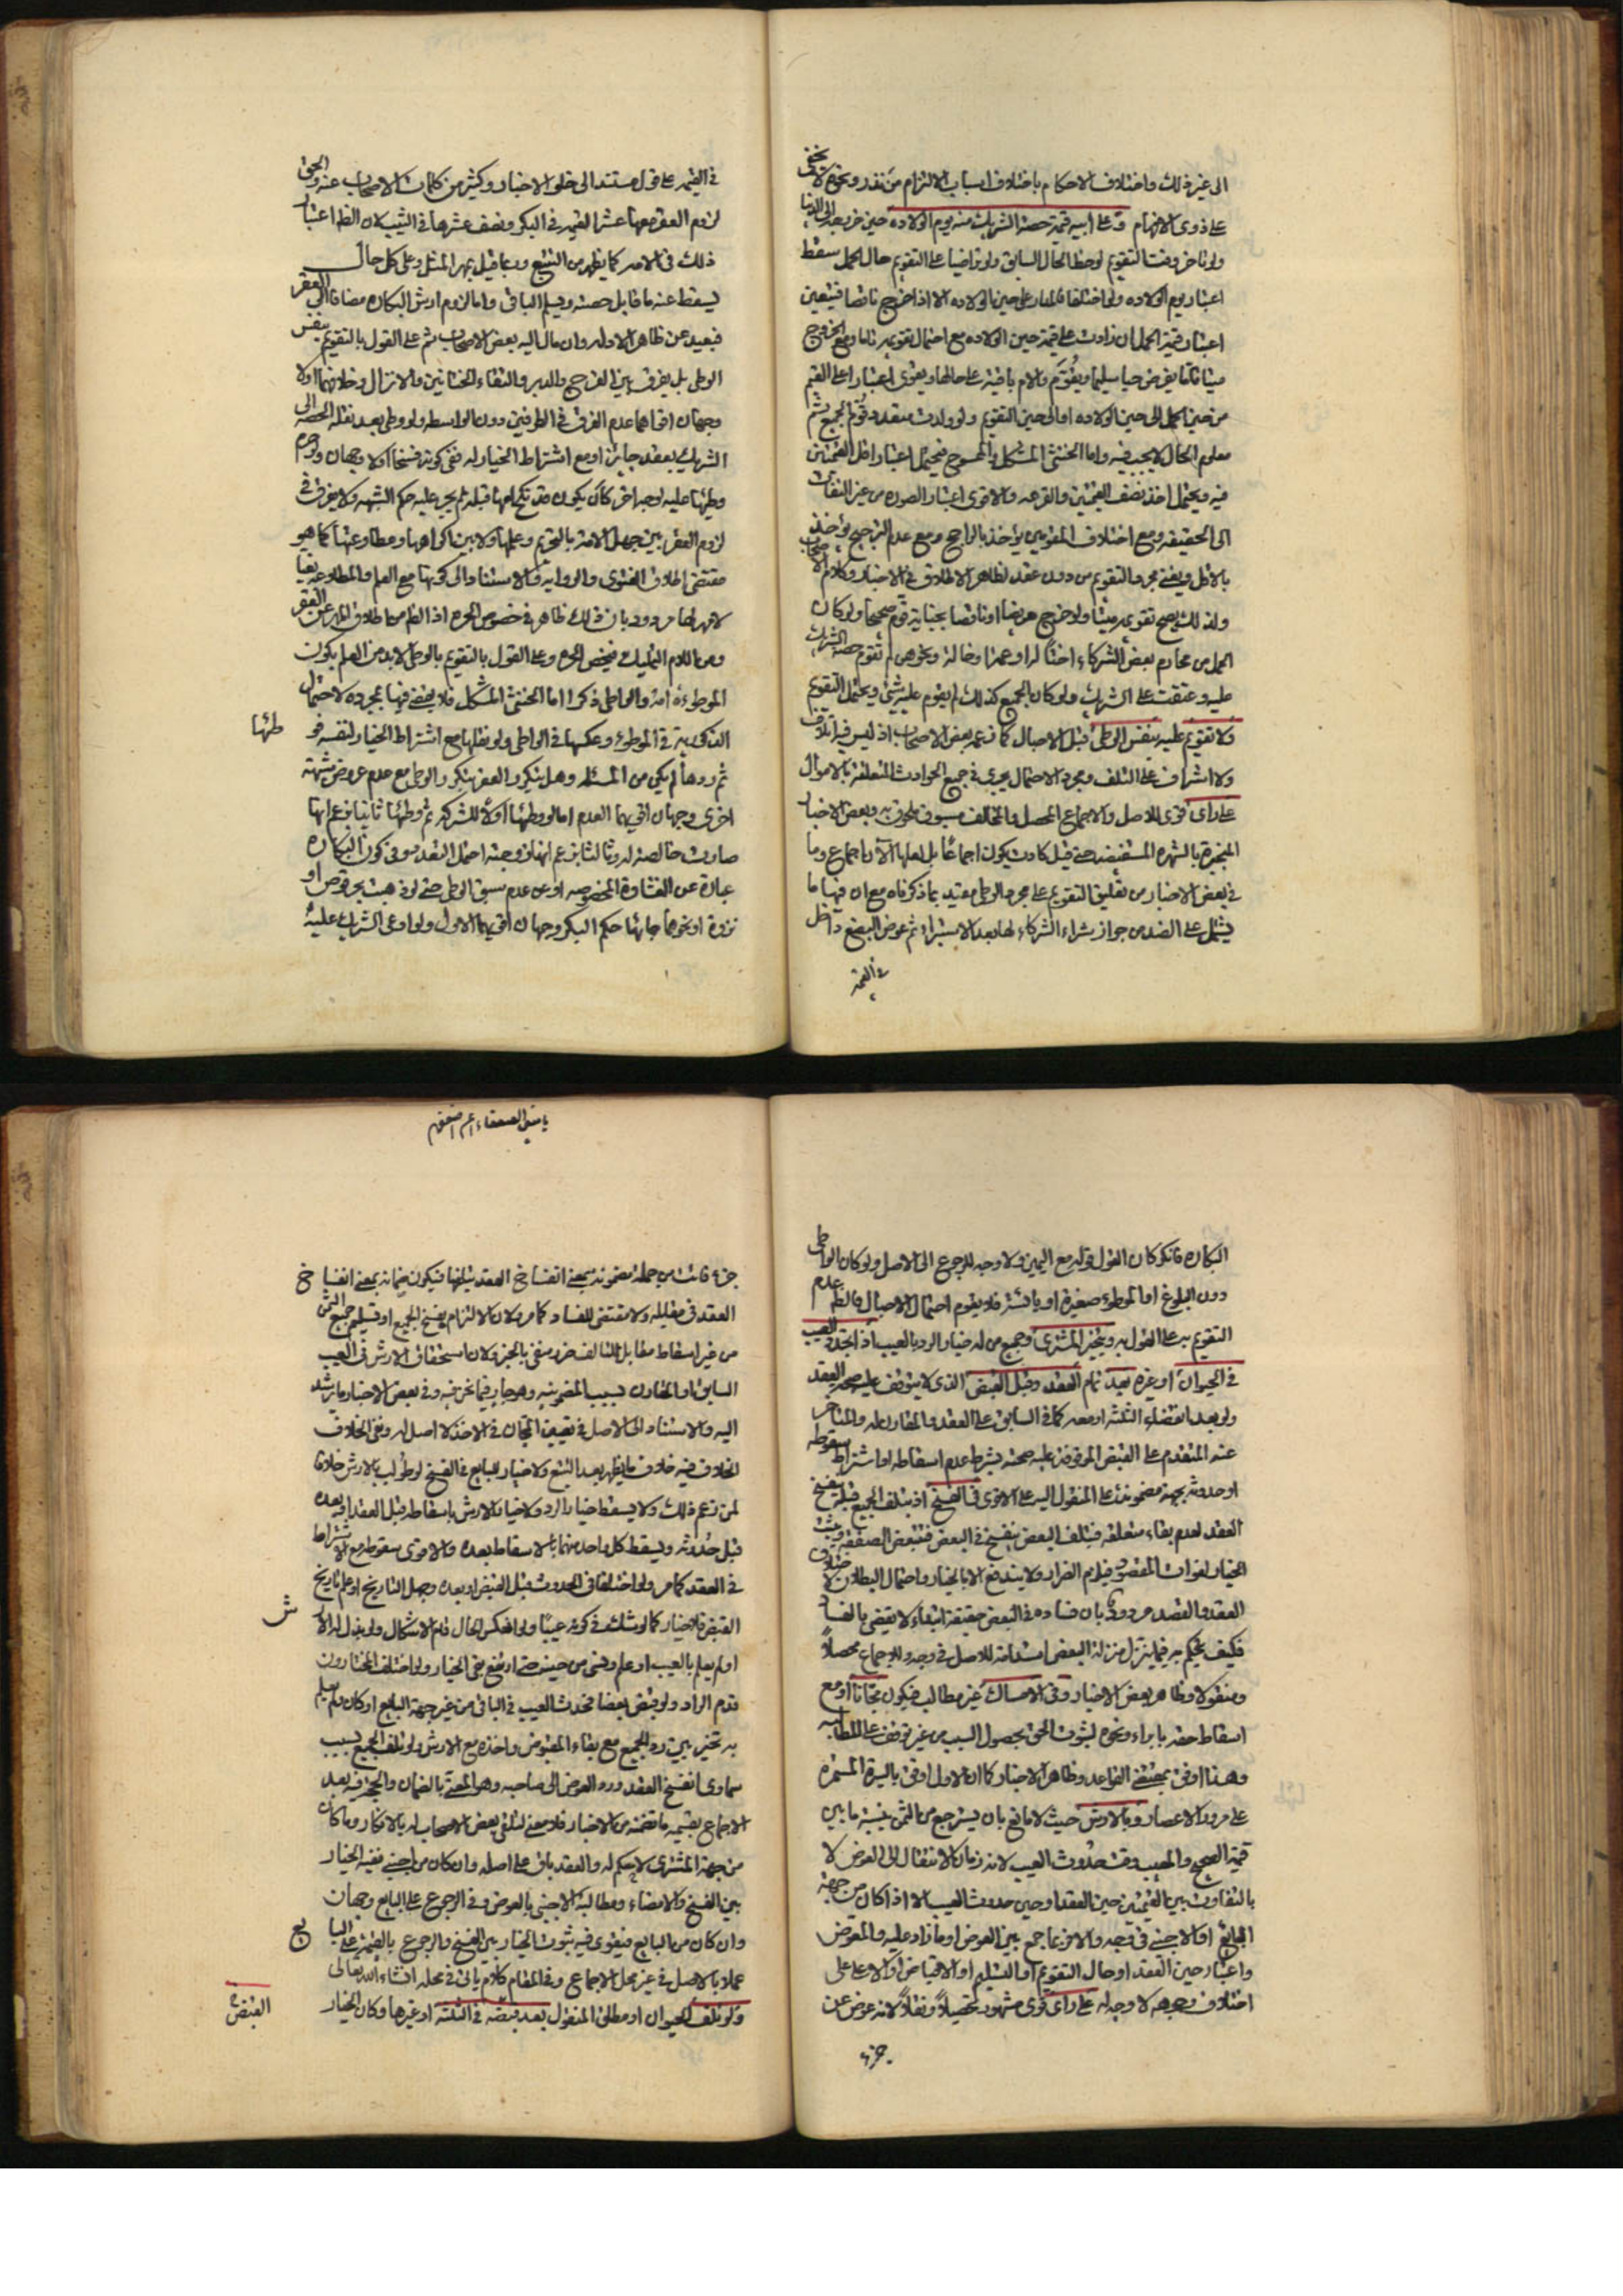 الى غير ذلك واختلاف الاحكام باختلاف اسباب الالتزام من نذر ونحوه لا تخفى
على ذوي الافهام وعلى ابيه قيمة حصة الشريك منه يوم الولادة حين خروجه الى الدنيا
ولو تاخر وقت التقويم لوحظ الحال السابق ولو تراضيا على التقويم حال الحمل سقط
اعتبار يوم الولادة ولو اختلفا فالمدار على حين الولادة الا اذا خرج ناقصا فيتعين
اعتبار قيمة الحمل ان زادت على قيمة حين الولادة مع احتمال تقويمه تاما ومع الخروج
ميتا تاما يفرض حيا سليما ويقوم والام باقية على حالها ويقوى اعتبار اعلى القيم
من حين الحمل الى حين الولادة او الى حين التقويم ولو ولدت متعددا قوم الجميع ثم
معلوم الحال لا يجب فيه واما الخنثى المشكل والممسوح فيحتمل اعتبار اقل القيمتين
فيه ويحتمل اخذ نصف القيمتين والقرعه والاقوى اعتبار الصوره من غير التفات
الى الحقيقه ومع اختلاف المقومين يؤخذ بالراجح ومع عدم الترجيح يؤخذ
بالاقل ويغني مجرد التقويم من دون عقد لظاهر الاطلاق في الاخبار وكلام الاصحاب
ولذلك يصح تقويمه ميتا ولو خرج مريضا او ناقصا بجناية قوم صحيحا ولو كان
الحمل من محارم بعض الشركاء اختا له او عمة او خالة ونحوهن لم تقوم حصة الشريك
عليه وعتقت على الشريك ولو كان الجميع كذلك لم يقوم عليه شئ ويحتمل التقويم
ولا تقويم عليه بنفس الوطي قبل الاحبال كما زعمه بعض الاصحاب اذ ليس فيه اتلاف
ولا اشراف على التلف ومجرد الاحتمال يجري في جميع الحوادث المتعلقة بالاموال
على راى قوى للاصل والاجماع المحصل والمخالف مسبوق ملحوق به وبعض الاخبار
المنجبرة بالشهره المستفيضه حتى قيل كادت يكون اجماعا بل لعلها الان اجماع وما
في بعض الاخبار من تعليق التقويم على مجرد الوطي مقيد بما ذكرناه مع ان فيها ما
يشتمل على الضد من جواز شراء الشركاء لها بعد الاستبراء ثم عوض البضع داخل
في القيمة
في القيمه على قول مستند الى خلو الاخبار وكثير من كلمات الاصحاب عنه والحق
لزوم العقر معها عشر القيمه في البكر ونصف عشرها في الثيب لان الظ اعتبار
ذلك في الامه كما يظهر من التتبع وربما قيل بمهر المثل وعلى كل حال
يسقط عنه ما قابل حصته ويسلم الباقي واما لزوم ارش البكاره مضافا الى العقر
فبعيد عن ظاهر الادله وان مال اليه بعض الاصحاب ثم على القول بالتقويم بنفس
الوطى بل يفرق بين الفرج والدبر والتقاء الختانين والانزال وخلافهما اولا
وجهان اقواهما عدم الفرق في الطرفين دون الواسطه ولو وطى بعد نقله الحصه الى
الشريك بعقد جايز او مع اشتراط الخيار له ففي كونه فسخا اولا وجهان ولو حرم
وطيها عليه لوجه اخر كان يكون قد نكح امها قبله لم يجر عليه حكم الشبهه ولا يفرق في
لزوم العقر بين جهل الامة بالتحريم وعلمها ولا بين اكراهها ومطاوعتها كما هو
مقتضى اطلاق الفتوى والروايه والاستناد الى كونها مع العلم والمطاوعه بغيا
لا مهر لها مردود بان ذلك ظاهر في خصوص الحره اذ الظ من اطلاق المهر غير العقر
ومن اللام التمليك فيخص الحره وعلى القول بالتقويم بالوطى لا بد من العلم بكون
الموطوءة امة والواطى ذكرا اما الخنثى المشكل فلا يقضى فيها بمجرده لاحتمال
الذكوريه في الموطوء وعكسها في الواطى ولو نقلها مع اشتراط الخيار لنفسه فو
طئها
ثم ردها لم يكن من المسئله وهل يتكرر العقر بتكرر الوطى مع عدم عروض شبهة
اخرى وجهان اقويهما العدم اما لو وطئها اولا للشركه ثم وطئها ثانيا بزعم انها
صارت خالصة له وثالثا بزعم انها زوجته احتمل التعدد وفي كون البكاره
عبارة عن الغشاوة المخصوصه او عن عدم سبق الوطى حتى لو ذهبت بحرقوص او
نزوة او نحوهما جائها حكم البكر وجهان اقويهما الاول ولو ادعى الشريك عليه
البكاره فانكر كان القول قوله مع اليمين ولا وجه للرجوع الى الاصل ولو كان الواطى
دون البلوغ او الموطوء صغيرة او يائسة فلا يقوم احتمال الاحبال فالظ عدم
التقويم به على القول به ويتخير المشترى وجميع من له خيار الرد بالعيب اذا تجدد العيب
في الحيوان او غيره بعد تمام العقد وقبل القبض الذى لا يتوقف عليه صحه العقد
ولو بعد انقضاء الثلثه او معه كما في السابق على العقد والمقارن له والمتاخر
عنه المتقدم على القبض الموقوف عليه صحته بشرط عدم اسقاطه او اشتراط سقوطه
او حدوثه بجهة مضمونة على المنقول اليه على الاقوى في الفسخ اذ بتلف الجميع قبله ينفسخ
العقد لعدم بقاء متعلقه فبتلف البعض ينفسخ في البعض فتتبعض الصفقه ويثبت
الخيار لفوات المقصود فيلزم الضرار ولا يندفع الا بالخيار واحتمال البطلان لاختلاف
العقد والقصد مردود بان فساده في البعض حقيقة ابتداء لا يقضي بالفساد
فكيف يحكم به فيما ينزل منزلة البعض استدامة للاصل في وجه وللاجماع محصلا
ومنقولا وظاهر بعض الاخبار وفي الامساك غير مطالب فيكون مجانا او مع
اسقاط حقه بابراء ونحوه لثبوت الحق بحصول السبب من غير توقف على المطالبه
وهذا اوفق بمقتضى القواعد وظاهر الاخبار كما ان الاول اوفق بالسيرة المستمره
على مرور الاعصار وبالارش حيث لا مانع بان يسترجع من الثمن بنسبة ما بين
قيمة الصحيح والمعيب وقت حدوث العيب لانه زمان الانتقال الى العوض لا
بالتفاوت بين القيمتين حين العقد او حين حدوث العيب الا اذا كان من جهة
البائع او الاجنبى في وجه والا فربما جمع بين العوض او ما زاد عليه والمعوض
واعتبار حين العقد او حال التقويم او التسليم او الاقباض او الاعلى على
اختلاف وجوهه لا وجه له على راى قوى مشهور تحصيلا ونقلا لانه عوض عن
جزء
يا معين الضعفاء
جزء فائت من جملة مضمونه بمعنى انفساخ العقد بتلفها فيكون ضمانه بمعنى انفساخ
العقد في مقابله ولا مقتضى للفساد كما مر ولان الالتزام بفسخ الجميع او تسليم جميع الثمن
من غير اسقاط مقابل التالف ضرر منفي بالخبر ولان استحقاق الارش في العيب
السابق او المقارن بسبب المضمونيه وهو جار فيما نحن فيه وفي بعض الاخبار ما يرشد
اليه والاستناد الى الاصل في تعيين المجان في الاخذ لا اصل له ونفي الخلاف
الخلاف فيه خلاف ما يظهر بعد التتبع ولا خيار للبايع في الفسخ لو طولب بالارش خلافا
لمن زعم ذلك ولا يسقط خيار الرد ولا خيار الارش باسقاطه قبل العقد او بعده
قبل حدوثه ويسقط كل واحد منهما بالاسقاط بعده والاقوى سقوطه مع الاشتراط
في العقد كما مر ولو اختلفا في الحدوث قبل القبض او بعده وجهل التاريخ او علم تاريخ
القبض فلا خيار كما لو شك في كونه عيبا ولو انعكس الحال قام الاشكال ولو بذل له الار
ش
او لم يعلم بالعيب او علم ونسى من حيث حتى ارتفع بقى الخيار ولو اختلف المختارون
قدم الراد ولو قبض بعضا فحدث العيب في الباقي من غير جهة البايع او كان ولم يعلم
به تخير بين رد الجميع مع بقاء المقبوض واخذه مع الارش ولو تلف الجميع بسبب
سماوى انفسخ العقد ورد العوض الى صاحبه وهو المعنى بالضمان والحجة فيه بعد
الاجماع بقسميه ما تضمنه من الاخبار فلا معنى لتلقى بعض الاصحاب له بالانكار وما كان
من جهة المشترى لا حكم له والعقد باق على اصله وان كان من اجنبى ففيه الخيار
بين الفسخ والامضاء ومطالبة الاجنبى بالعوض وفي الرجوع على البايع وجهان
وان كان من البايع فيقوى فيه ثبوت الخيار بين الفسخ والرجوع بالقيمة على البا
يع
عملا بالاصل في غير محل الاجماع وفي المقام كلام ياتى في محله انشاء الله تعالى
ولو تلف الحيوان او مطلق المنقول بعد قبضه في الثلثه او غيرها وكان الخيار